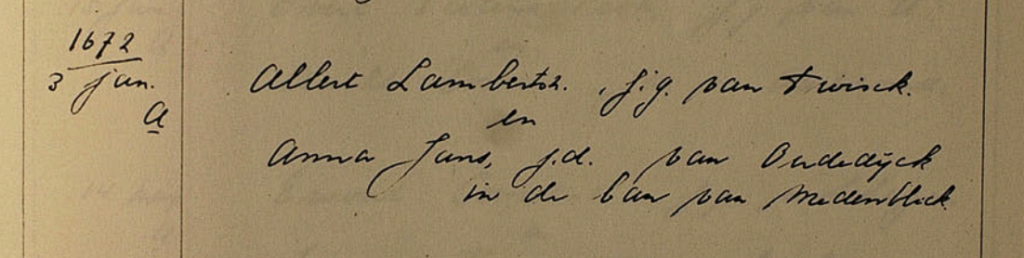 1672
3 jan.
a
Allert Lambertsz., j.g. van Twisck.
en
Anna Jans, j.d. van Oudedijck
in de ban van Medenblick